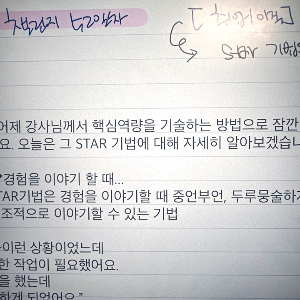 어제 강사님께서 핵심역량을 기술하는 방법으로 잠깐
요. 오늘은 그 STAR 기법에 대해 자세히 알아보겠습니
*경험을 이야기 할 때...
TAR기법은 경험을 이야기할 때 중언부언, 두루뭉술하
조적으로 이야기할 수 있는 기법
이런 상황이었는데
한 작업이 필요했어요.
을 했는데
하게 되었어요."